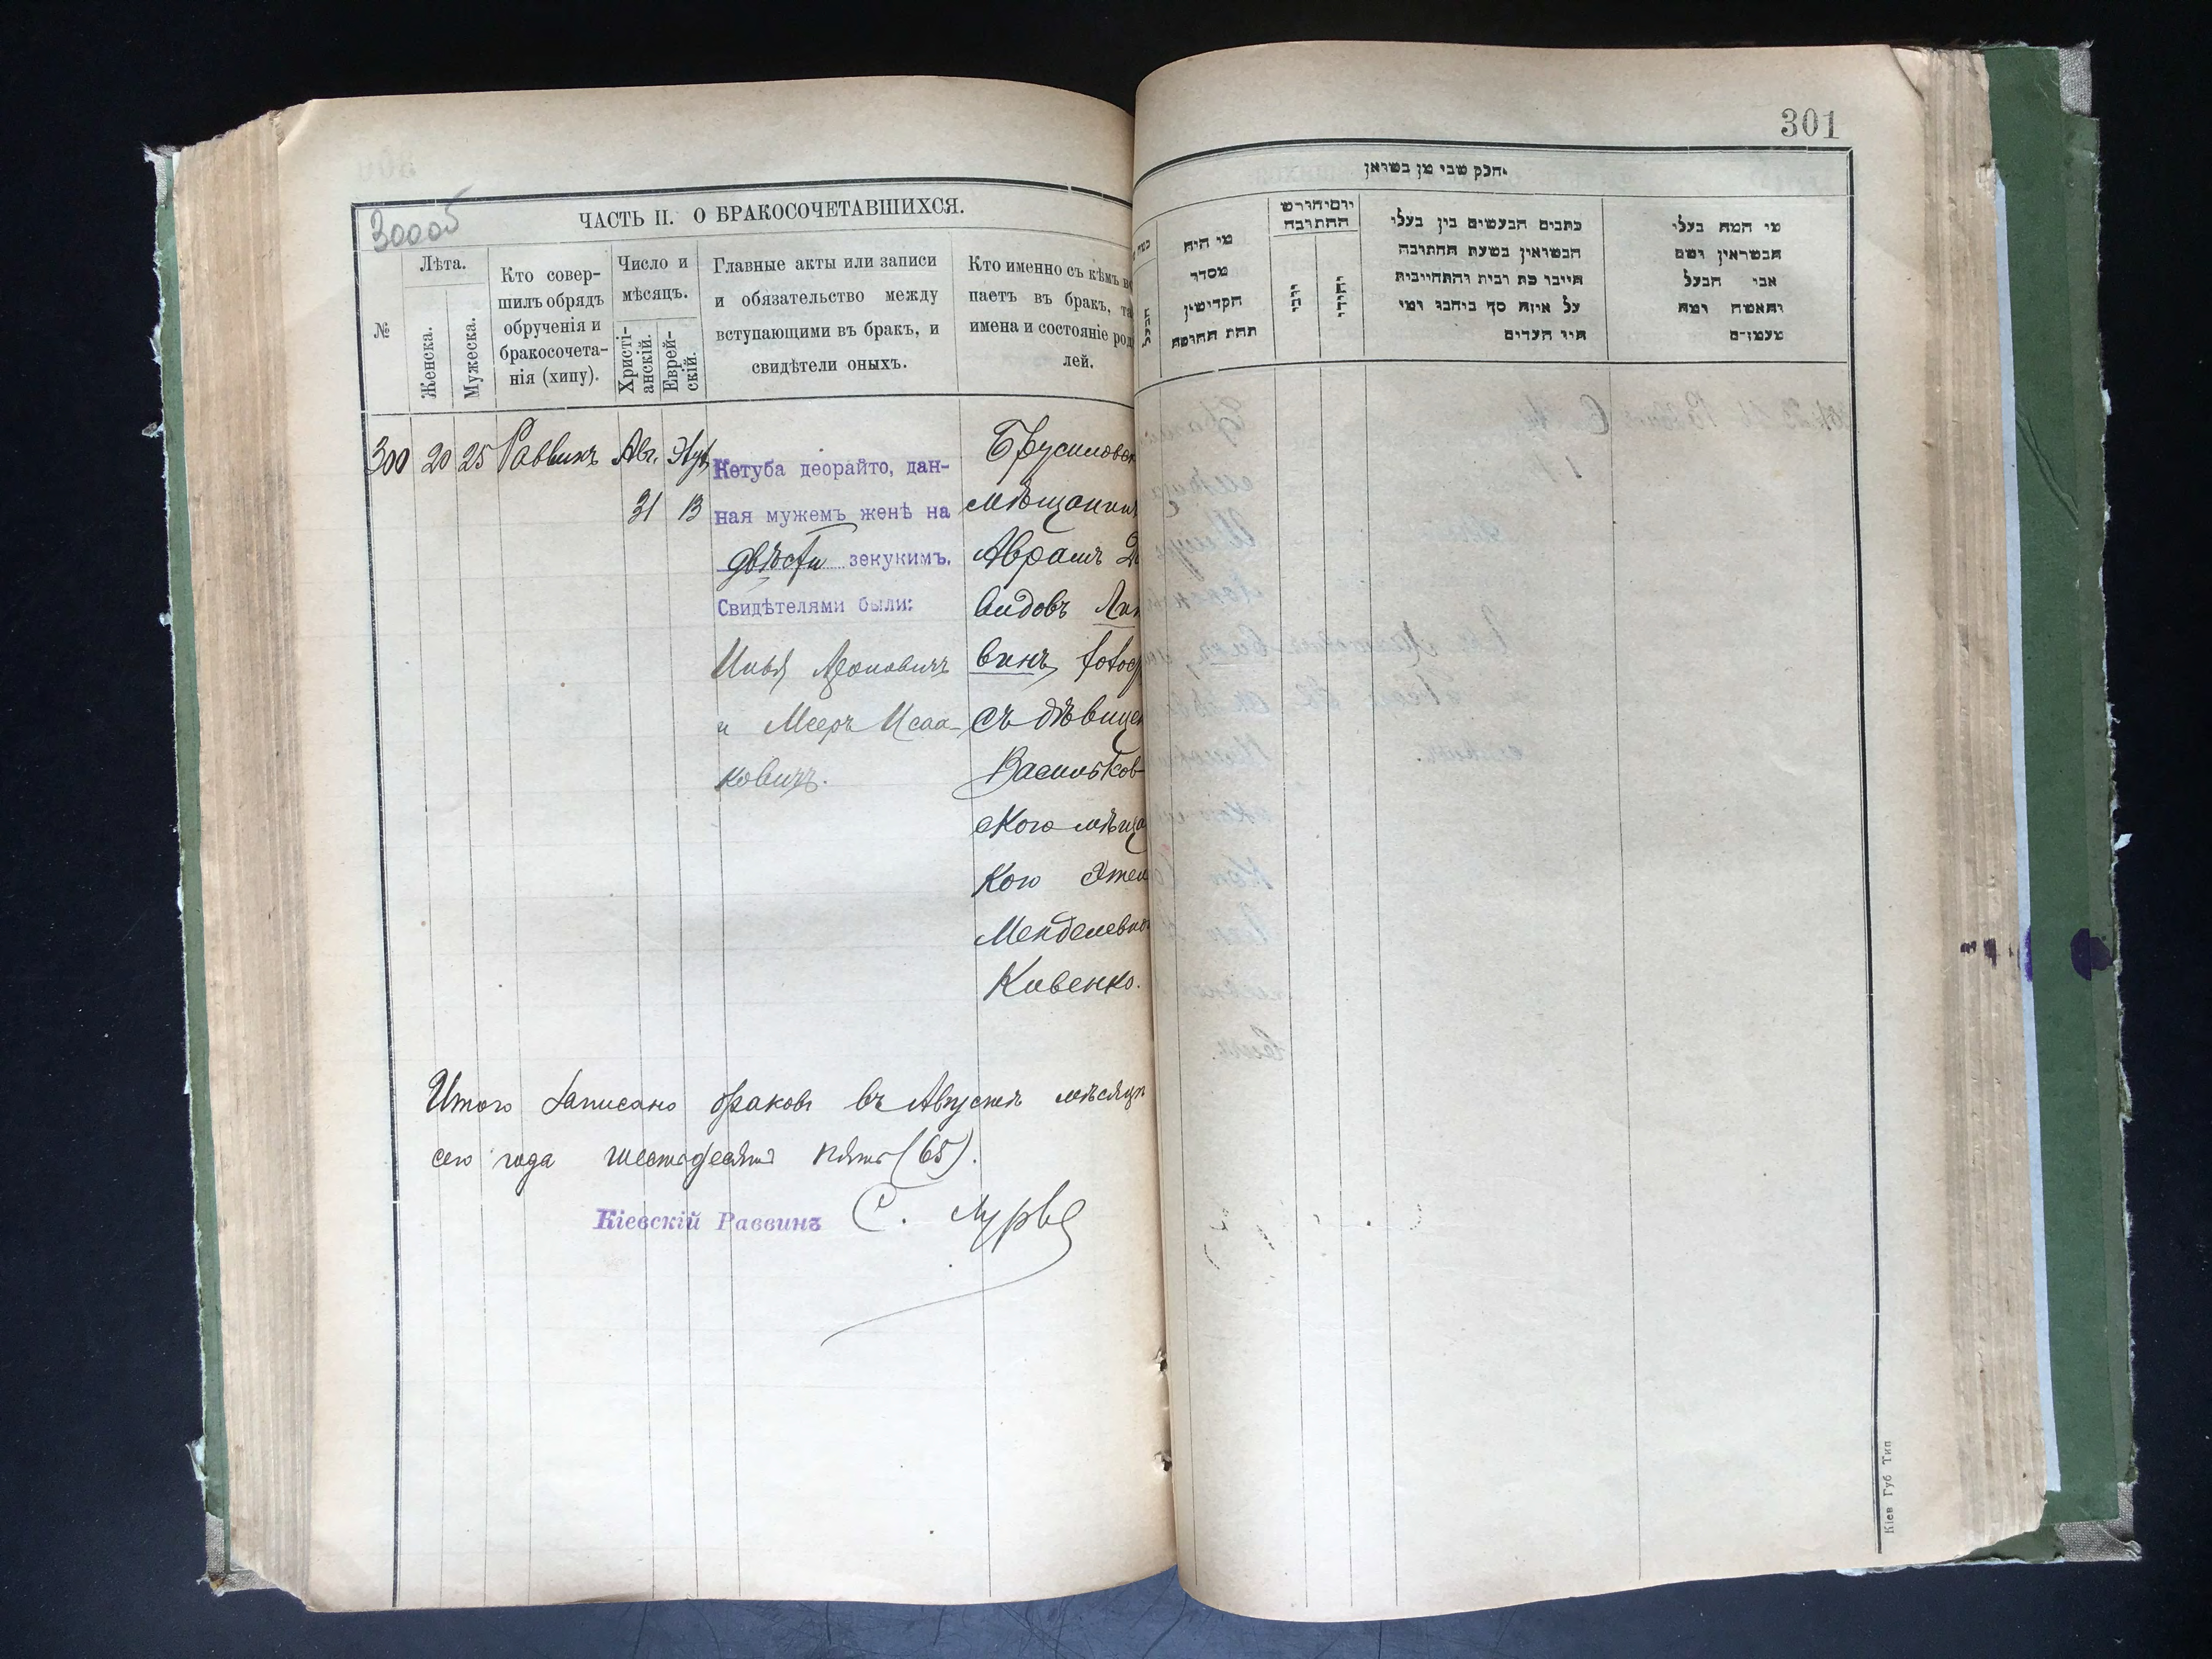 300об
ЧАСТЬ II. О БРАКОСОЧЕТАВШИХСЯ.
№
Лѣта.
Женска.
Мужеска.
Кто совер-
шилъ обрядъ
обрученія и
бракосочета-
нія (хипу).
Число и
мѣсяцъ.
Христі-
анскій.
Еврей-
скій.
Главные акты или записи
и обязательство между
вступающими въ бракъ, и
свидѣтели оныхъ.
Кто именно съ кѣмъ вс
паетъ въ бракъ, та
имена и состояніе род
лей.
300 20 25 Раввинъ Авг.
31 13
Кетуба деорайто, дан-
ная мужемъ женѣ на
двѣсти зекукимъ.
Свидѣтелями были:
Илья Ароновичъ
и Мееръ Исаа-
ковичъ.
Брусиловск
мѣщанинъ
Аврамъ Да
видовъ
винъ, фотогр
съ дѣвицей
Васильков-
скою мѣща
кою Этел
Менделевно
Кивенко.
Итого записано браковъ въ Августѣ мѣсяцѣ
сего года шестьдесятъ пять (65).
Кіевскій Раввинъ С. Лурье
301
חלק שני מן נשואין
כתבים הנעשים בין בעלי
הנשואין בשעת החתונה
על איזה סך
מי היה
מסדר
הקדושין
תחת החופה
מי המה בעלי
אבי הבעל
והאשה ומה
מעמדם
Кіев Губ Тип